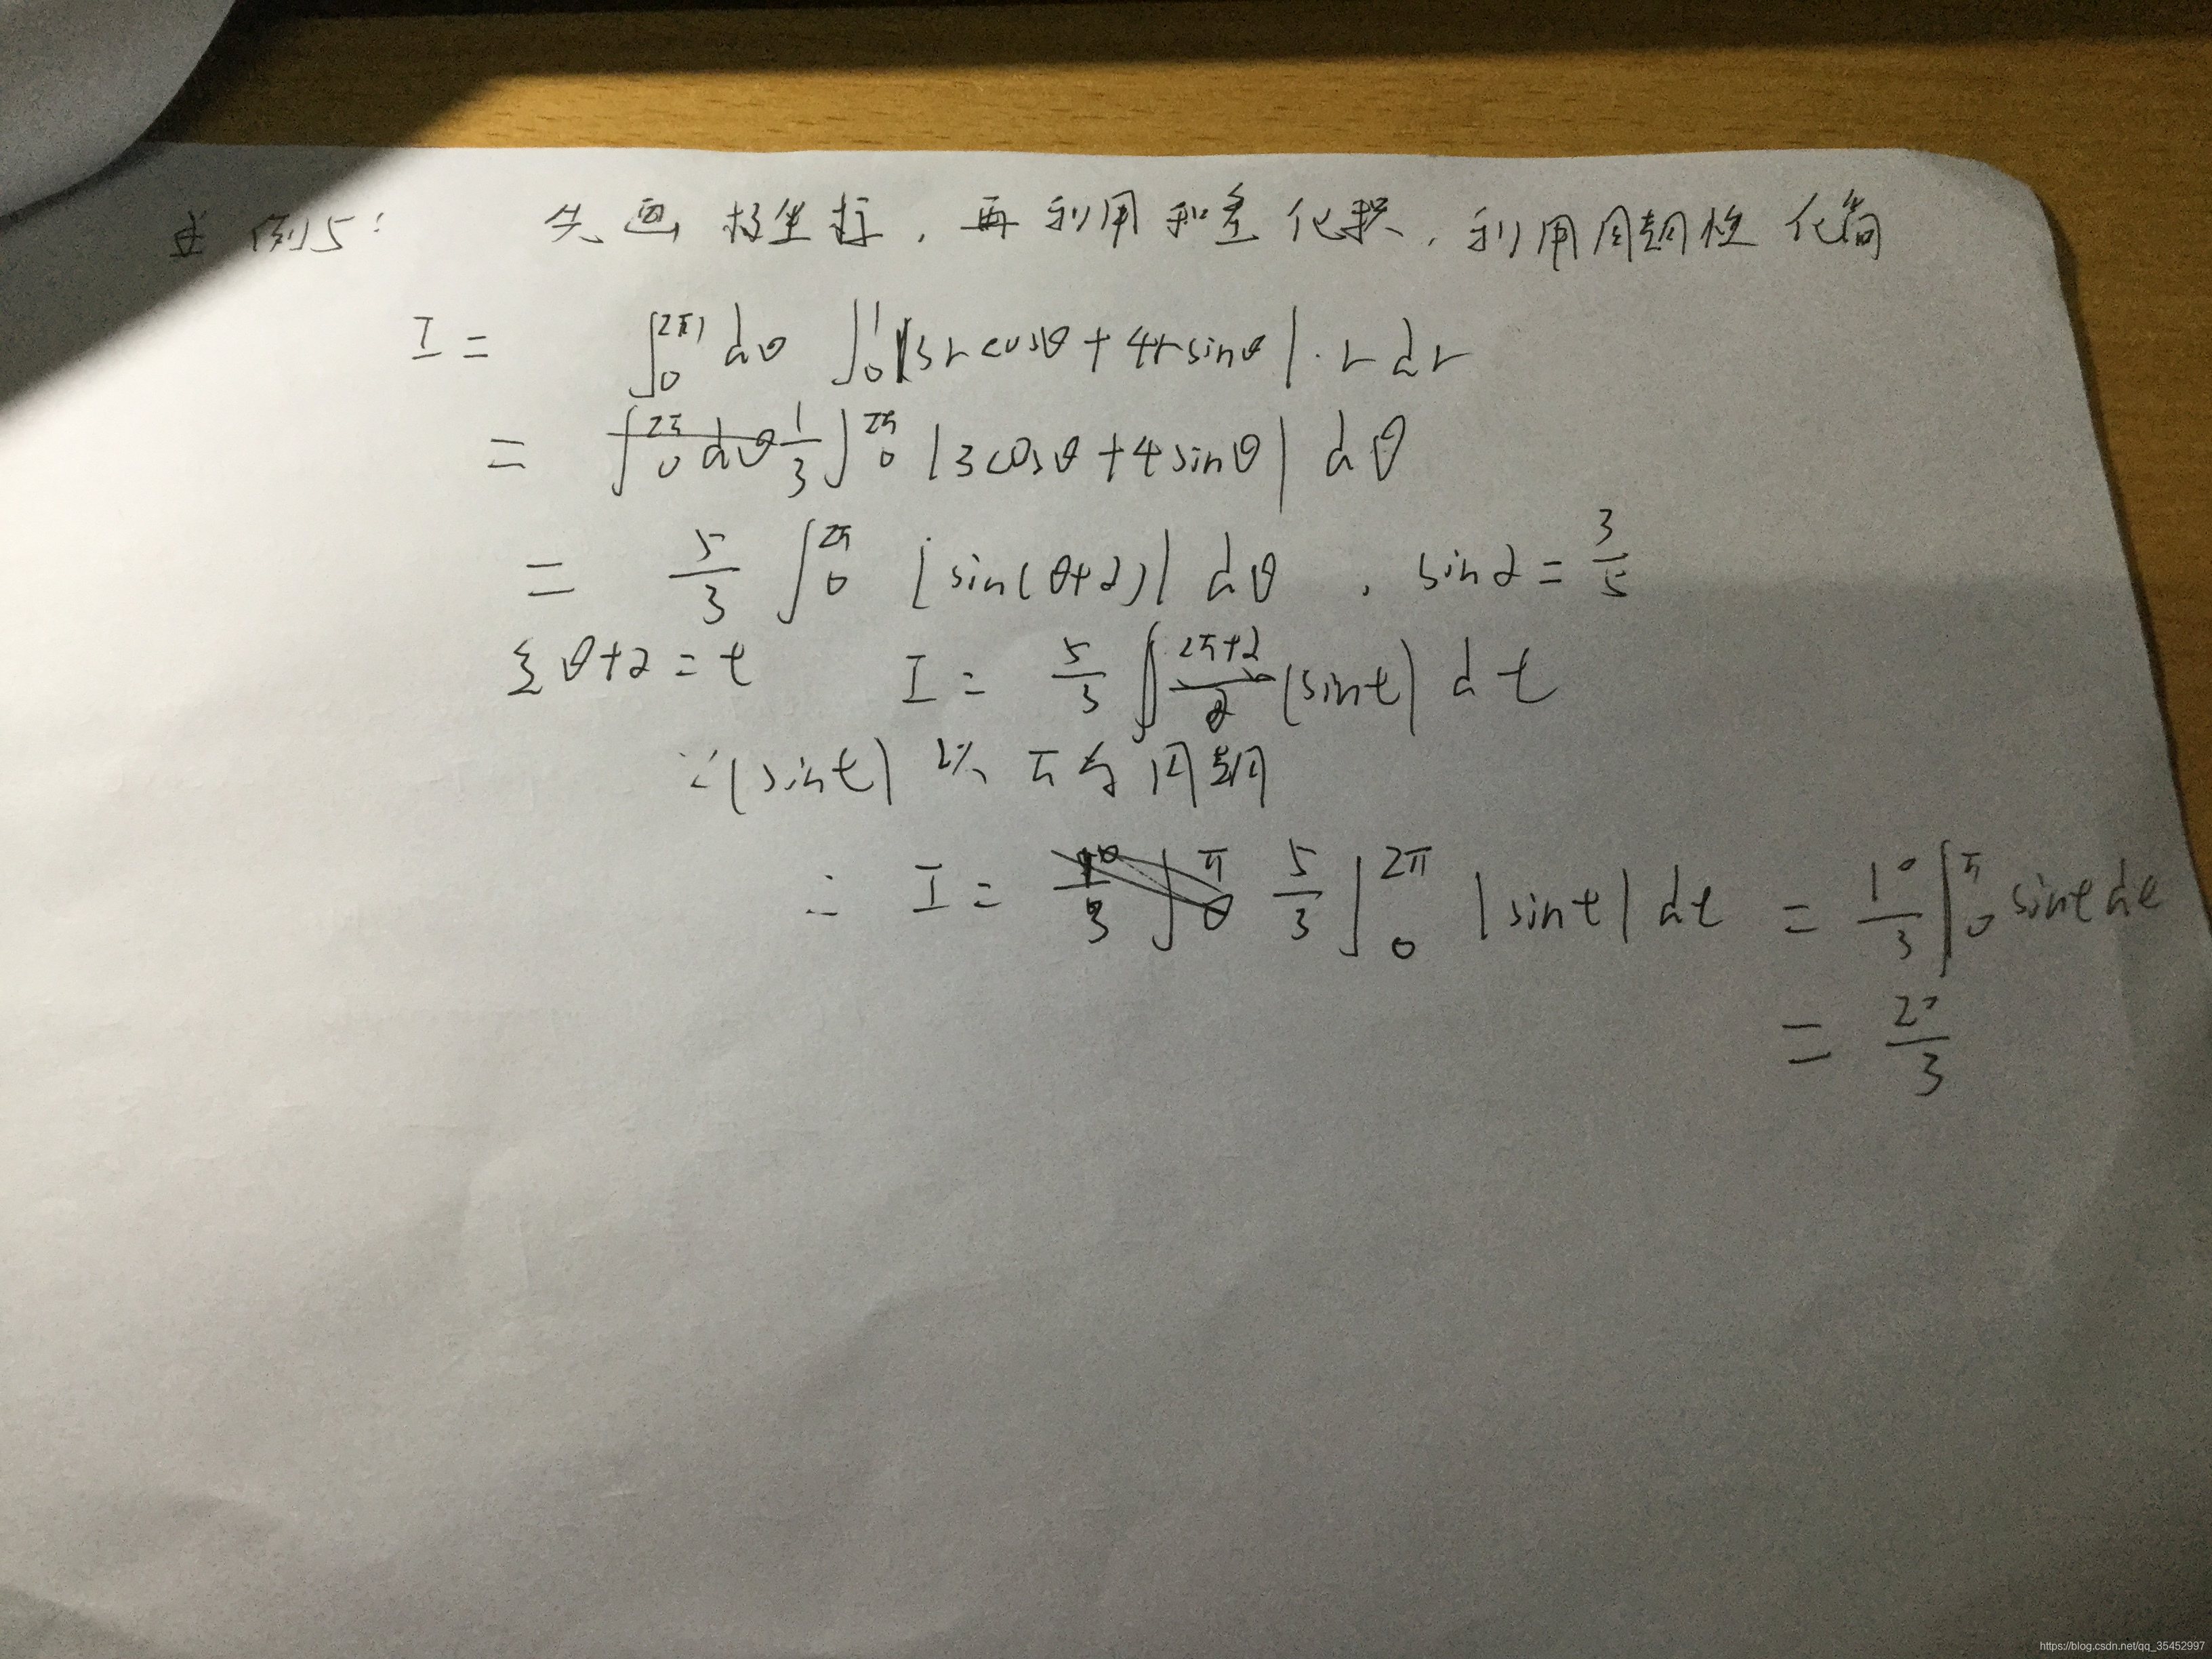 例5: 先画极坐标，再利用和差化积，利用周期性化简
I = ∫₀^{2π} dθ ∫₀^1 |3r cosθ + 4r sinθ| · r dr
= 1/3 ∫₀^{2π} |3cosθ + 4sinθ| dθ
= 5/3 ∫₀^{2π} |sin(θ+α)| dθ , sinα = 3/5
令 θ+α = t I = 5/3 ∫_α^{2π+α} |sint| dt
∵ |sint| 以 π 为周期
∴ I = 5/3 ∫₀^{2π} |sint| dt = 10/3 ∫₀^π sint dt
= 20/3
https://blog.csdn.net/qq_35452997